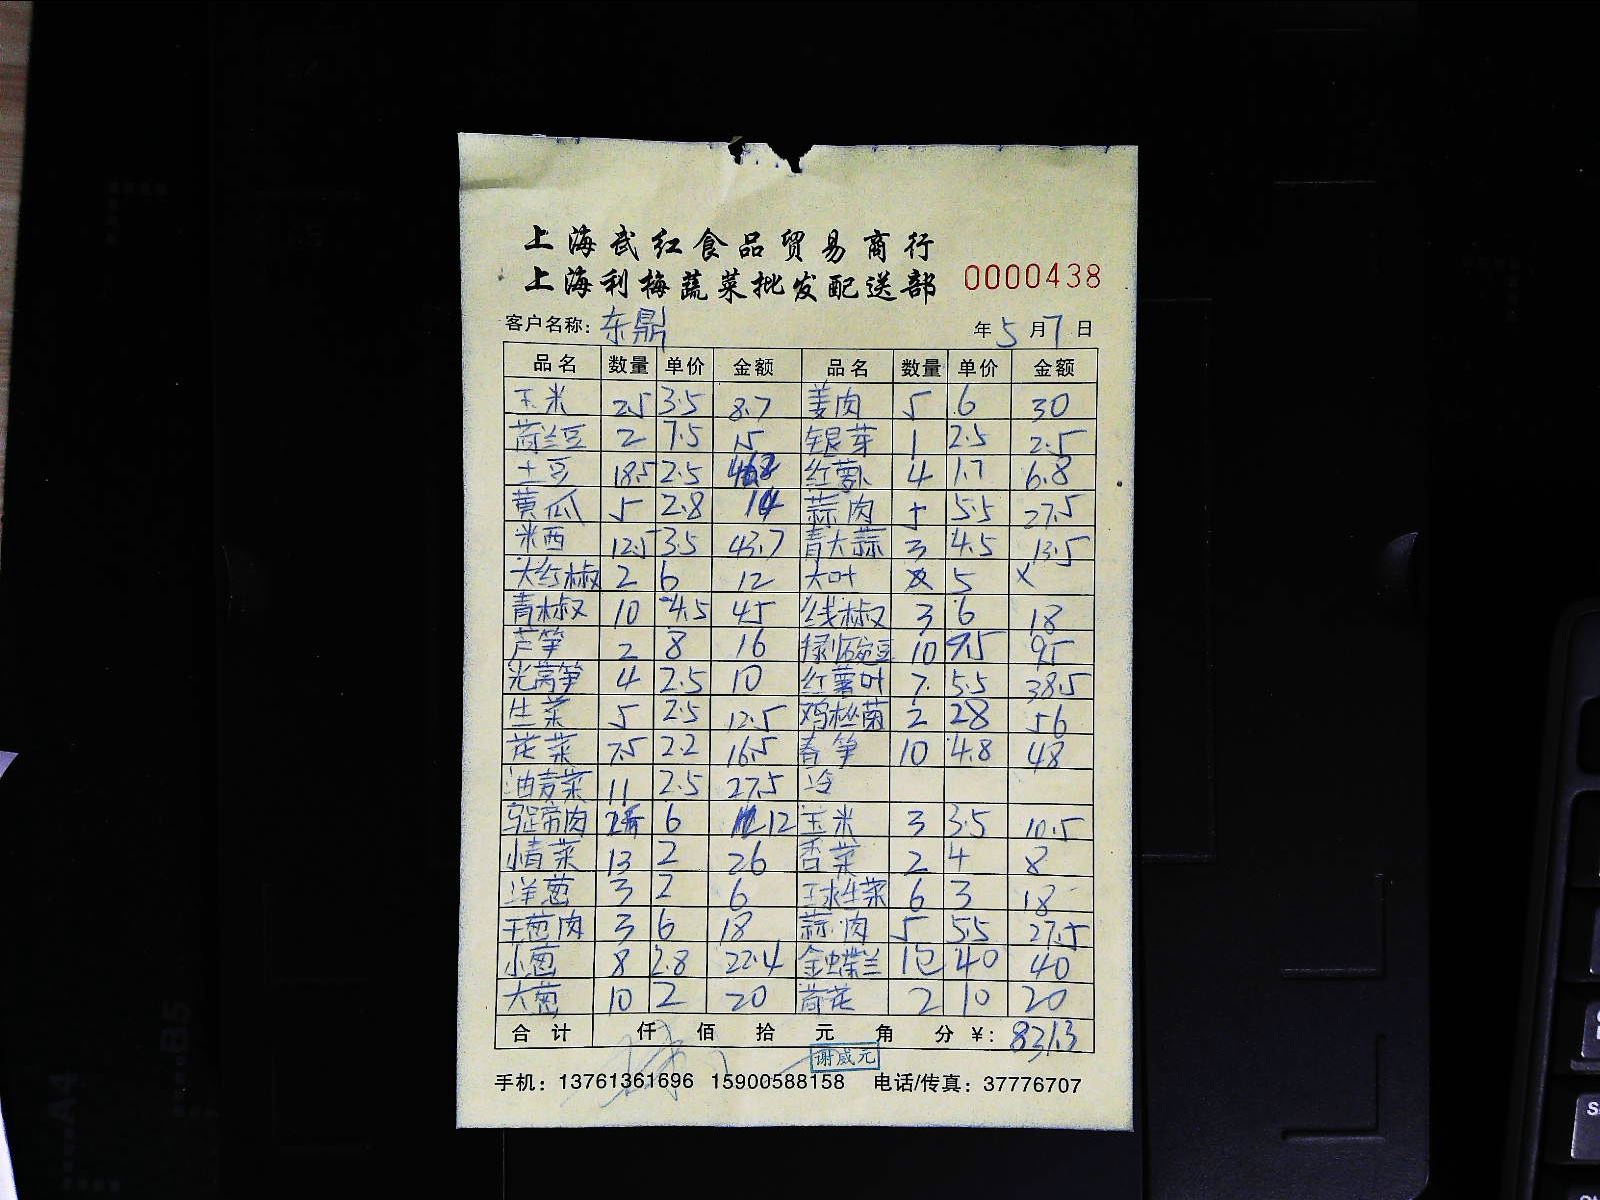 上海武红食品贸易商行
上海利梅蔬菜批发配送部 0000438
客户名称: 东鼎 年 5 月 7 日
品名 数量 单价 金额 品名 数量 单价 金额
玉米 2.5 3.5 8.7 姜肉 5 6 30
荷兰豆 2 7.5 15 银芽 1 2.5 2.5
土豆 18.5 2.5 46.2 红萝卜 4 1.7 6.8
黄瓜 5 2.8 14 蒜肉 5 5.5 27.5
米西 12.5 3.5 43.7 青大蒜 3 4.5 13.5
大红椒 2 6 12 大叶 5 ×
青椒 10 4.5 45 线椒 3 6 18
芦笋 2 8 16 绿豌豆 10 9.5 95
光莴笋 4 2.5 10 红薯叶 7 5.5 38.5
生菜 5 2.5 12.5 鸡枞菌 2 28 56
花菜 7.5 2.2 16.5 春笋 10 4.8 48
油麦菜 11 2.5 27.5 冷
6 12 玉米 3 3.5 10.5
小青菜 13 2 26 香菜 2 4 8
洋葱 3 2 6 球生菜 6 3 18
干葱肉 3 6 18 蒜肉 5 5.5 27.5
小葱 8 2.8 22.4 金蝶兰 1包 40 40
大葱 10 2 20 荷花 2 10 20
合计 仟 佰 拾 元 角 分 ¥: 831.3
谢威元
手机: 13761361696 15900588158 电话/传真: 37776707